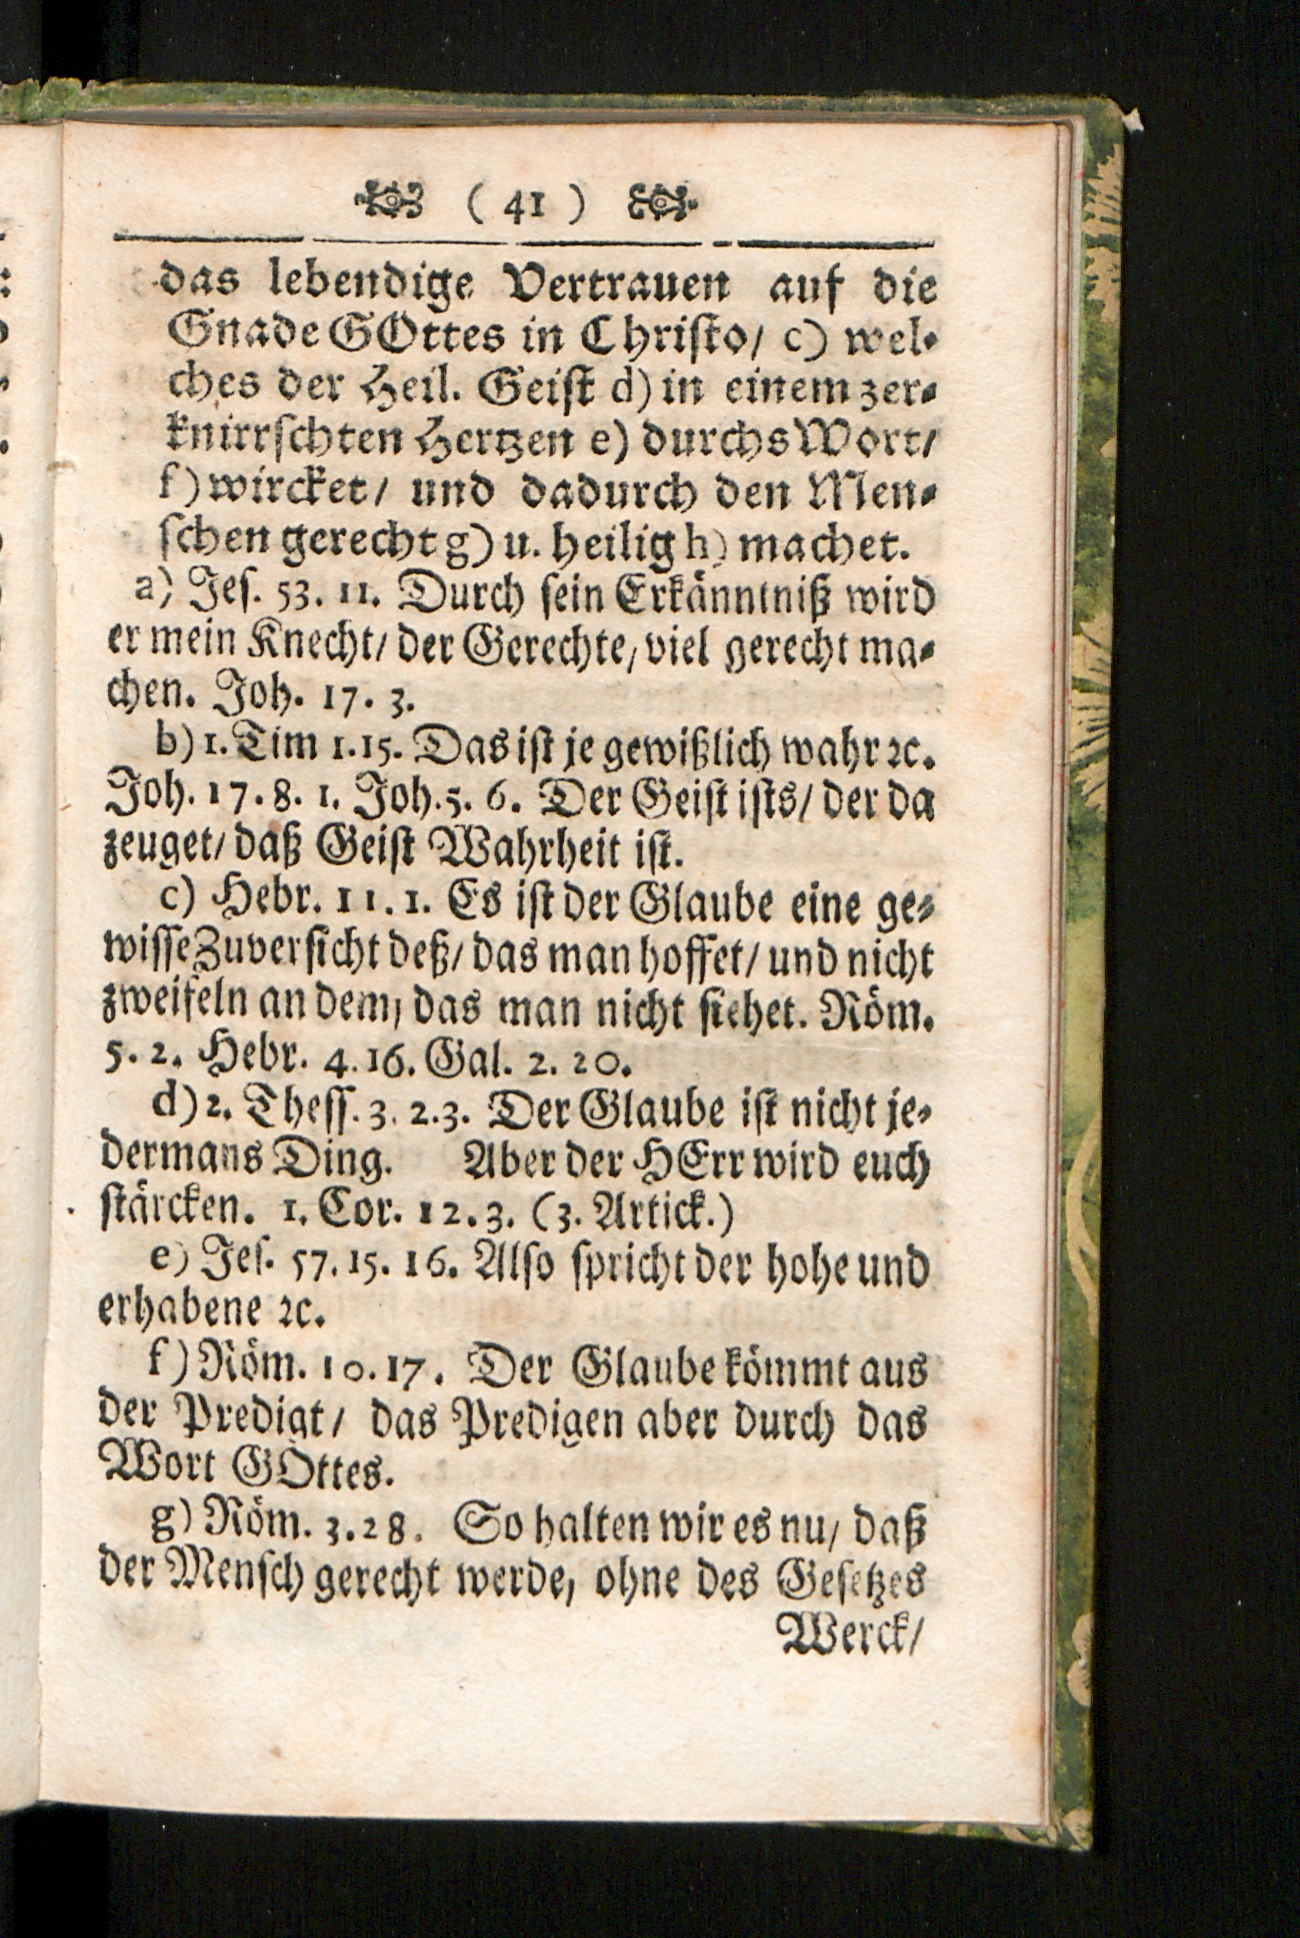 ( 41 )
das lebendige Vertrauen auf die
Gnade GOttes in Christo/ c) wel-
ches der Heil. Geist d) in einem zer-
knirrschten Hertzen e) durchs Wort/
f) wircket/ und dadurch den Men-
schen gerecht g) u. heilig h) machet.
a) Jes. 53. 11. Durch sein Erkänntniß wird
er mein Knecht/ der Gerechte, viel gerecht ma-
chen. Joh. 17. 3.
b) 1. Tim 1.15. Das ist je gewißlich wahr ꝛc.
Joh. 17. 8. 1. Joh. 5. 6. Der Geist ists/ der da
zeuget/ daß Geist Wahrheit ist.
c) Hebr. 11. 1. Es ist der Glaube eine ge-
wisse Zuversicht deß/ das man hoffet/ und nicht
zweifeln an dem, das man nicht siehet. Röm.
5. 2. Hebr. 4. 16. Gal. 2. 20.
d) 2. Thess. 3. 2. 3. Der Glaube ist nicht je-
dermans Ding. Aber der HErr wird euch
stärcken. 1. Cor. 12. 3. (3. Artick.)
e) Jes. 57. 15. 16. Also spricht der hohe und
erhabene ꝛc.
f) Röm. 10. 17. Der Glaube kömmt aus
der Predigt/ das Predigen aber durch das
Wort GOttes.
g) Röm. 3. 28. So halten wir es nu, daß
der Mensch gerecht werde, ohne des Gesetzes
Werck/